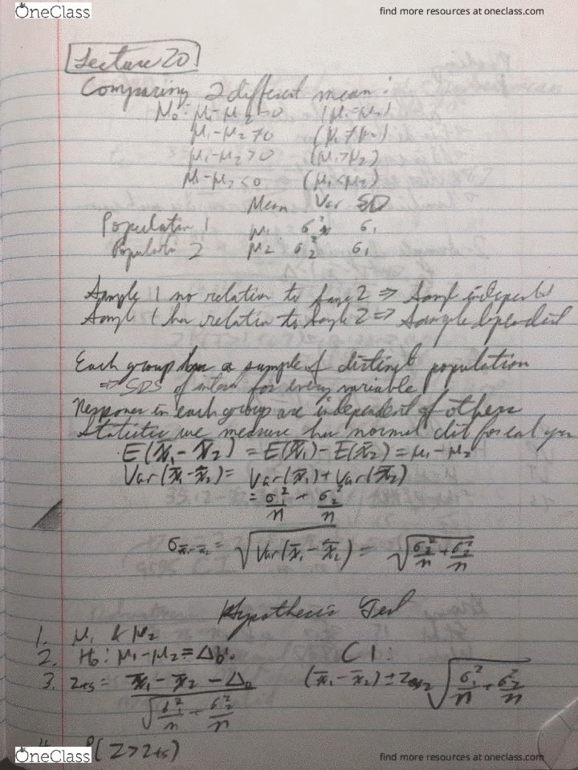 OneClass
find more resources at oneclass.com
Lecture 20
Comparing 2 different mean:
μ0: μ1-μ2=0 (μ1=μ2)
μ1-μ2≠0 (μ1≠μ2)
μ1-μ2>0 (μ1>μ2)
μ1-μ2<0 (μ1<μ2)
Mean Var SD
Population 1 μ1 σ²1 σ1
Population 2 μ2 σ²2 σ1
Sample 1 no relation to 2 ⇒ independent
Sample 1 has relation to Sample 2 ⇒ Sample dependent
Each group has a sample of distinct population
⇒ SDS of interest for every variable
Responses in each group are independent of others
Statistics we measure has normal dist for each
E(x̄1-x̄2) = E(x̄1)-E(x̄2)=μ1-μ2
Var(x̄1-x̄2)= Var(x̄1)+Var(x̄2)
= σ1²/n + σ2²/n
σx̄1-x̄2 = √Var(x̄1-x̄2) = √σ2²/n + σ2²/n
Hypothesis Test
1. μ1 & μ2
2. H0: μ1-μ2=Δ0. CI:
3. zts= x̄1-x̄2-Δ0 / √σ1²/n + σ2²/n (x̄1-x̄2)±zα/2 √σ1²/n + σ2²/n
P(Z>zts)
OneClass
find more resources at oneclass.com